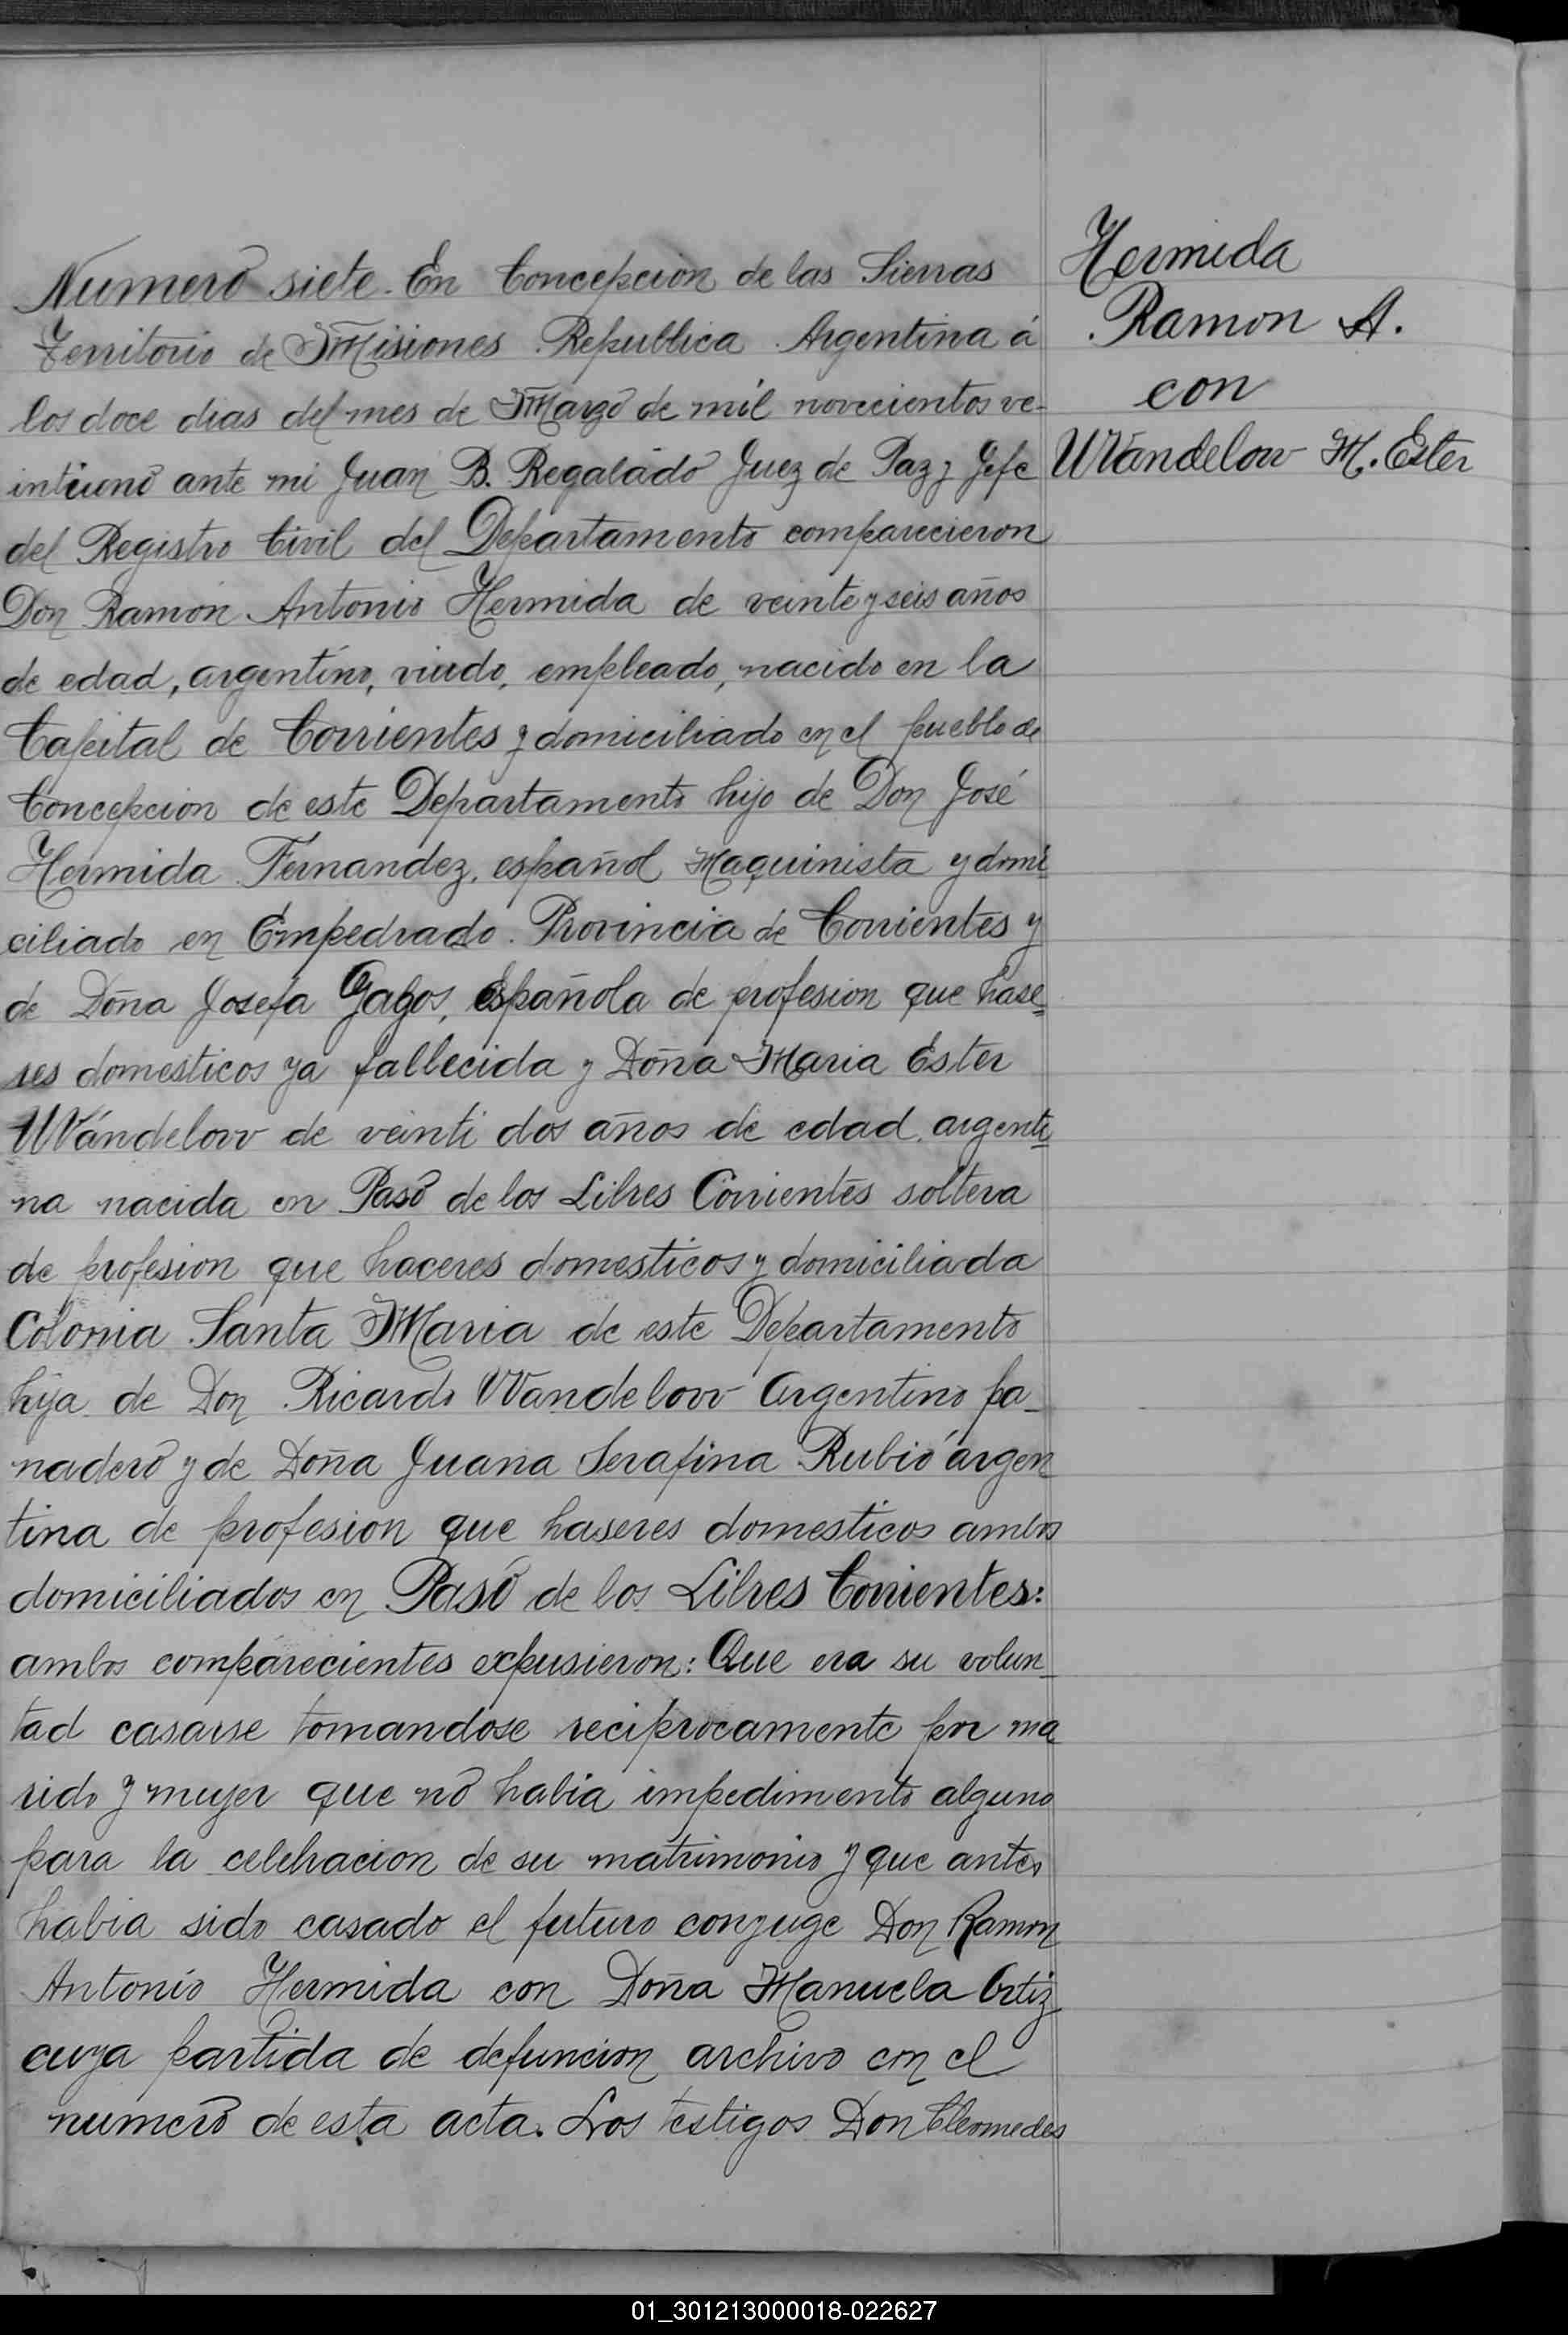 Hermida
Ramon A.
con
Wandelow M. Ester
Numero siete. En Concepcion de las Sierras
Territorio de Misiones Republica Argentina á
los doce dias del mes de Marzo de mil novecientos ve-
intiuno ante mi Juan B. Regalado Juez de Paz y Jefe
del Registro Civil del Departamento comparecieron
Don Ramón Antonio Hermida de veinte y seis años
de edad, argentino, viudo, empleado, nacido en la
Capital de Corrientes y domiciliado en el pueblo de
Concepcion de este Departamento hijo de Don José
Hermida Fernandez, español Maquinista y domi
ciliado en Empedrado. Provincia de Corrientes y
de Doña Josefa Gagos, española de profesion que hase=
res domesticos ya fallecida y Doña Maria Ester
Wándelow de veinti dos años de edad argenti=
na nacida en Paso de los Libres Corrientes soltera
de profesion que haceres domesticos y domiciliada
Colonia Santa Maria de este Departamento
hija de Don Ricardo Wandelow Argentino pa-
nadero y de Doña Juana Serafina Rubio argen
tina de profesion que haseres domesticos ambos
domiciliados en Paso de los Libres Corrientes:
ambos comparecientes expusieron: Que era su volun-
tad casarse tomandose reciprocamente por ma
rido y mujer que no habia impedimento alguno
para la celebracion de su matrimonio y que antes
habia sido casado el futuro conyuge Don Ramon
Antonio Hermida con Doña Manuela Ortiz
cuya partida de defuncion archivo con el
numero de esta acta. Los testigos Don Cleomedes
01_301213000018-022627